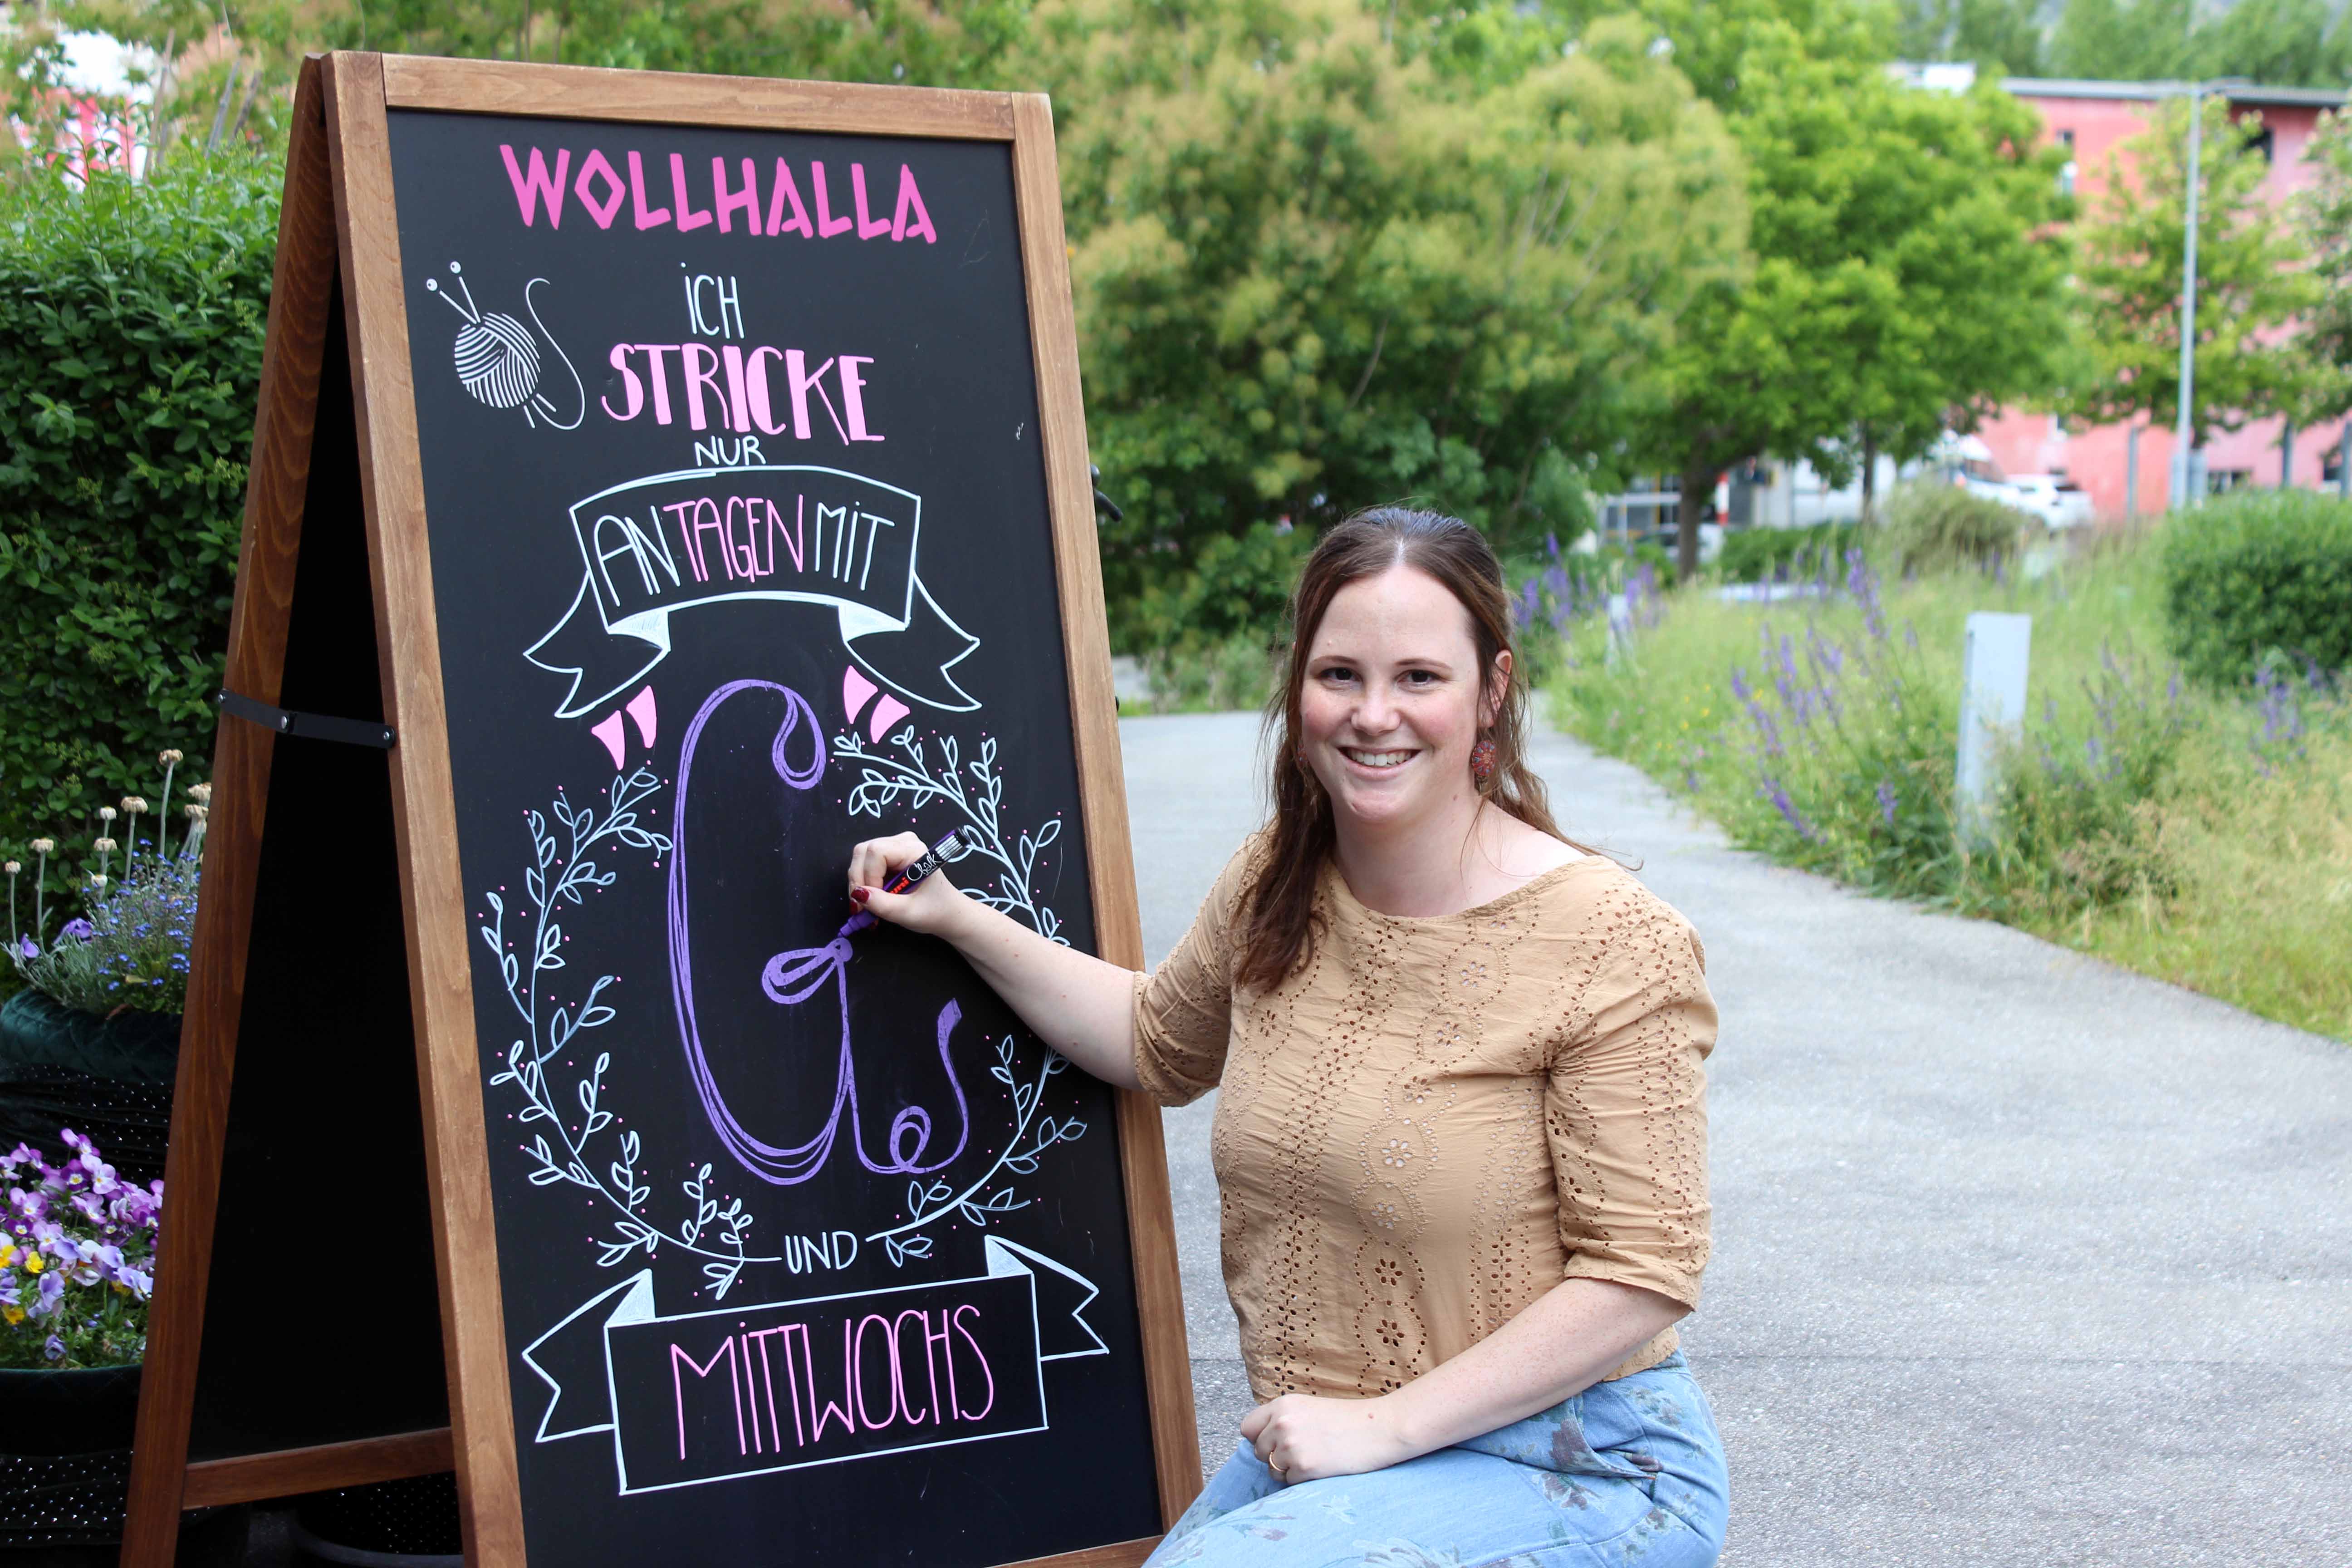 WOLLHALLA
iCH
STRICKE
NUR
AN TAGEN MiT
G
UND
MiTTWOCHS
Chalk